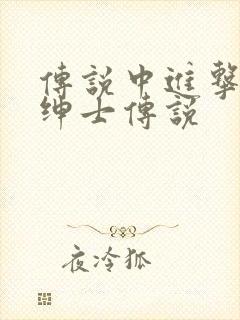 傳說中進擊
紳士傳說
夜冷狐